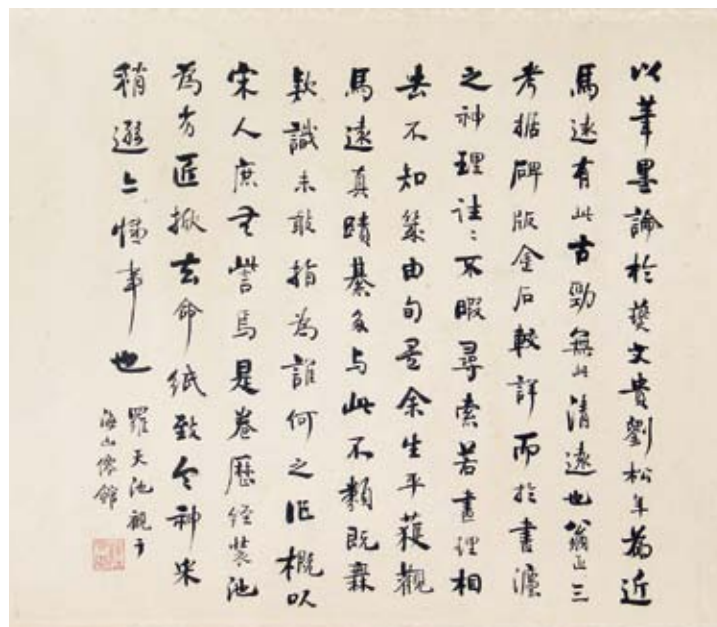 以筆墨論於燕文貴劉松年為近
馬遠有此古勁無此清遠也翁正三
考据碑版金石較詳而於書灋
之神理往〻不暇尋索若畫理相
去不知幾由旬矣余生平獲觀
馬遠真蹟綦多与此不類既無
款識未敢指為誰何之作概以
宋人庶无訾焉是卷歷經裝池
為劣匠掀去命紙致令神采
稍遜亦憾事也
羅天池觀于
海山僊館